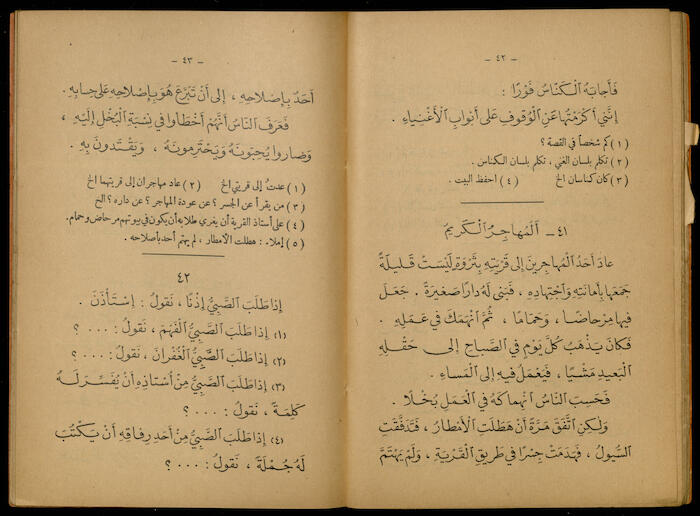 - ٤٢ -
فَأَجابَهُ الْكَنّاسُ فَوْرًا :
إِنَّني أَكْرَمْتُها عَنِ الْوُقوفِ عَلى أَبْوابِ الْأَغْنِياءِ .
(١) كم شخصاً في القصة ؟
(٢) تكلم بلسان الغني ، تكلم بلسان الكناس .
(٣) كان كناسان الخ (٤) احفظ البيت .
٤١ - اَلْمُهاجِرُ الْكَريمُ
عادَ أَحَدُ الْمُهاجِرينَ إِلى قَرْيَتِهِ بِثَرْوَةٍ لَيْسَتْ قَليلَةً
جَمَعَها بِأَمانَتِهِ وَاجْتِهادِهِ ، فَبَنى لَهُ دارًا صَغيرَةً . جَعَلَ
فيها مِرْحاضًا ، وَحَمّامًا ، ثُمَّ انْهَمَكَ في عَمَلِهِ .
فَكانَ يَذْهَبُ كُلَّ يَوْمٍ في الصَّباحِ إِلى حَقْلِهِ
الْبَعيدِ مَشْيًا ، فَيَعْمَلُ فيهِ إِلى الْمَساءِ .
فَحَسِبَ النّاسُ انْهِماكَهُ في الْعَمَلِ بُخْلًا .
وَلكِنِ اتَّفَقَ مَرَّةً أَنْ هَطَلَتِ الْأَمْطارُ ، فَتَدَفَّقَتِ
السُّيولُ ، فَهَدَمَتْ جِسْرًا في طَريقِ الْقَرْيَةِ ، وَلَمْ يَهْتَمَّ
- ٤٣ -
أَحَدٌ بِإِصْلاحِهِ ، إِلى أَنْ تَبَرَّعَ هُوَ بِإِصْلاحِهِ عَلى حِسابِهِ .
فَعَرَفَ النّاسُ أَنَّهُمْ أَخْطَأوا في نِسْبَةِ الْبُخْلِ إِلَيْهِ ،
وَصاروا يُحِبّونَهُ وَيَحْتَرِمونَهُ ، وَيَقْتَدونَ بِهِ .
(١) عدتُ إلى قريتي الخ (٢) عاد مهاجران إلى قريتهما الخ
(٣) من يقرأ عن الجسر ؟ عن عودة المهاجر ؟ عن داره ؟ الخ
(٤) على أستاذ القرية أن يغري طلابه أن يكون في بيوتهم مرحاض وحمام .
(٥) إملاء : هطلت الأمطار ، لم يهتم أحد بأصلاحه .
٤٢
إِذا طَلَبَ الصَّبِيُّ إِذْنًا ، نَقولُ : إِسْتَأْذَنَ .
(١) إِذا طَلَبَ الصَّبِيُّ الْفَهْمَ ، نَقولُ : . . . ؟
(٢) إِذا طَلَبَ الصَّبِيُّ الْغُفْرانَ ، نَقولُ : . . . ؟
(٣) إِذا طَلَبَ الصَّبِيُّ مِنْ أُسْتاذِهِ أَنْ يُفَسِّرَ لَهُ
كَلِمَةً ، نَقولُ : . . . ؟
(٤) إِذا طَلَبَ الصَّبِيُّ مِنْ أَحَدِ رِفاقِهِ أَنْ يَكْتُبَ
لَهُ جُمْلَةً ، نَقولُ : . . . ؟